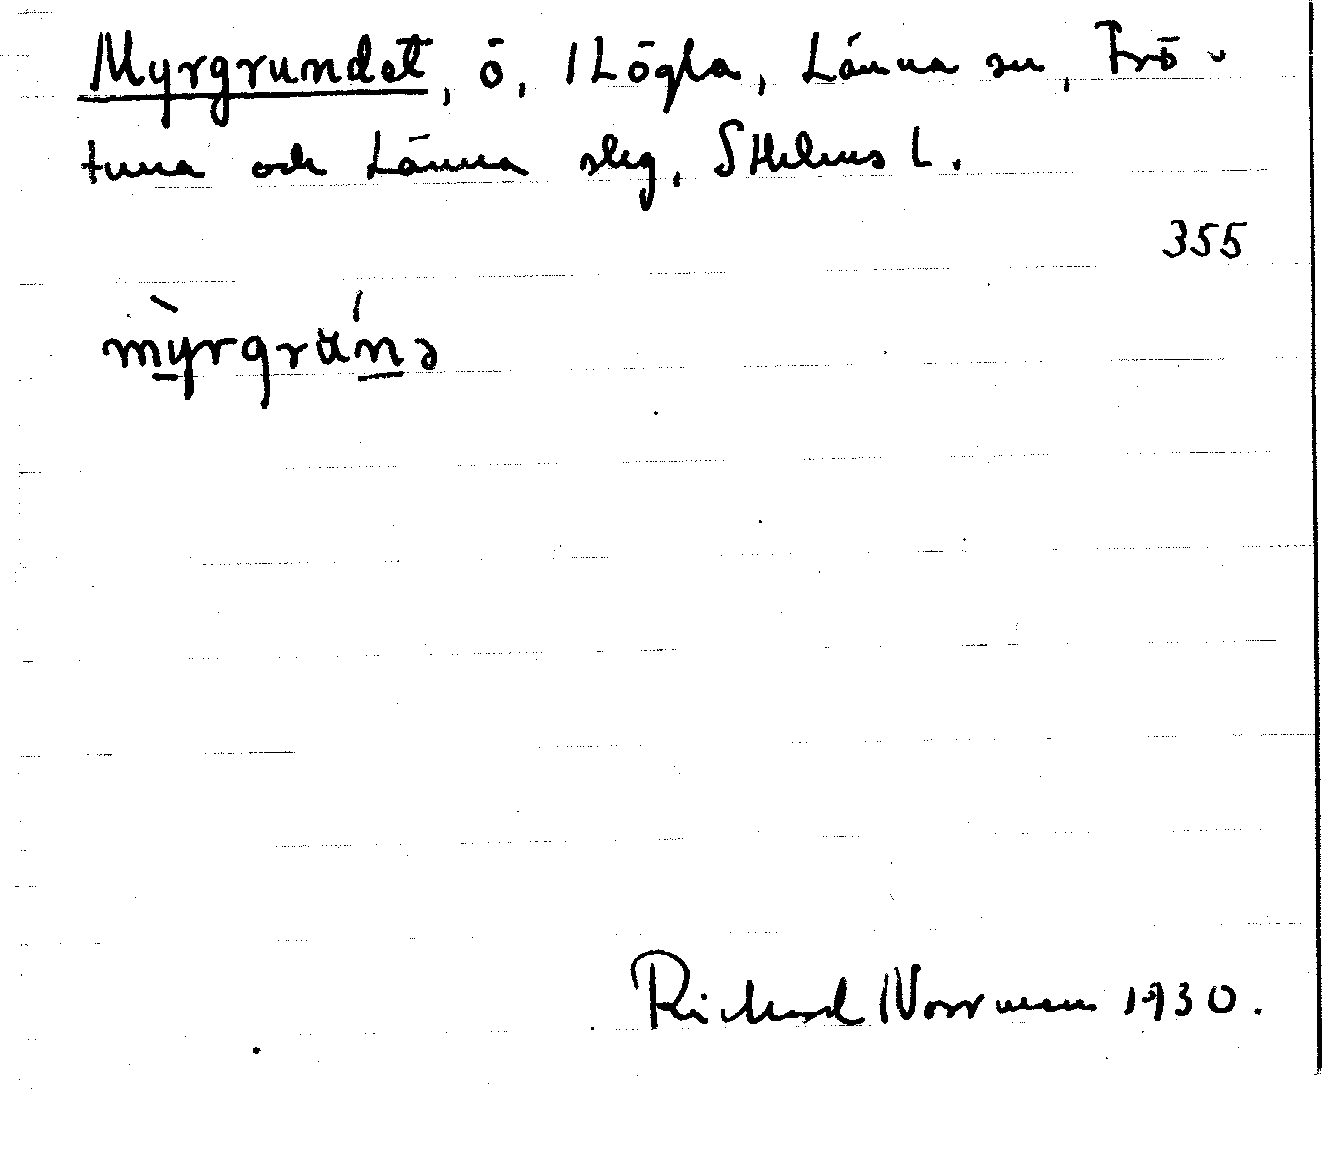 Myrgrundet, ö, 1 Högla, Länna sn, Frö-
tuna och Länna slg, Sthlms L.
355
my̱rgrün̲ə
Richard Norrman 1930.